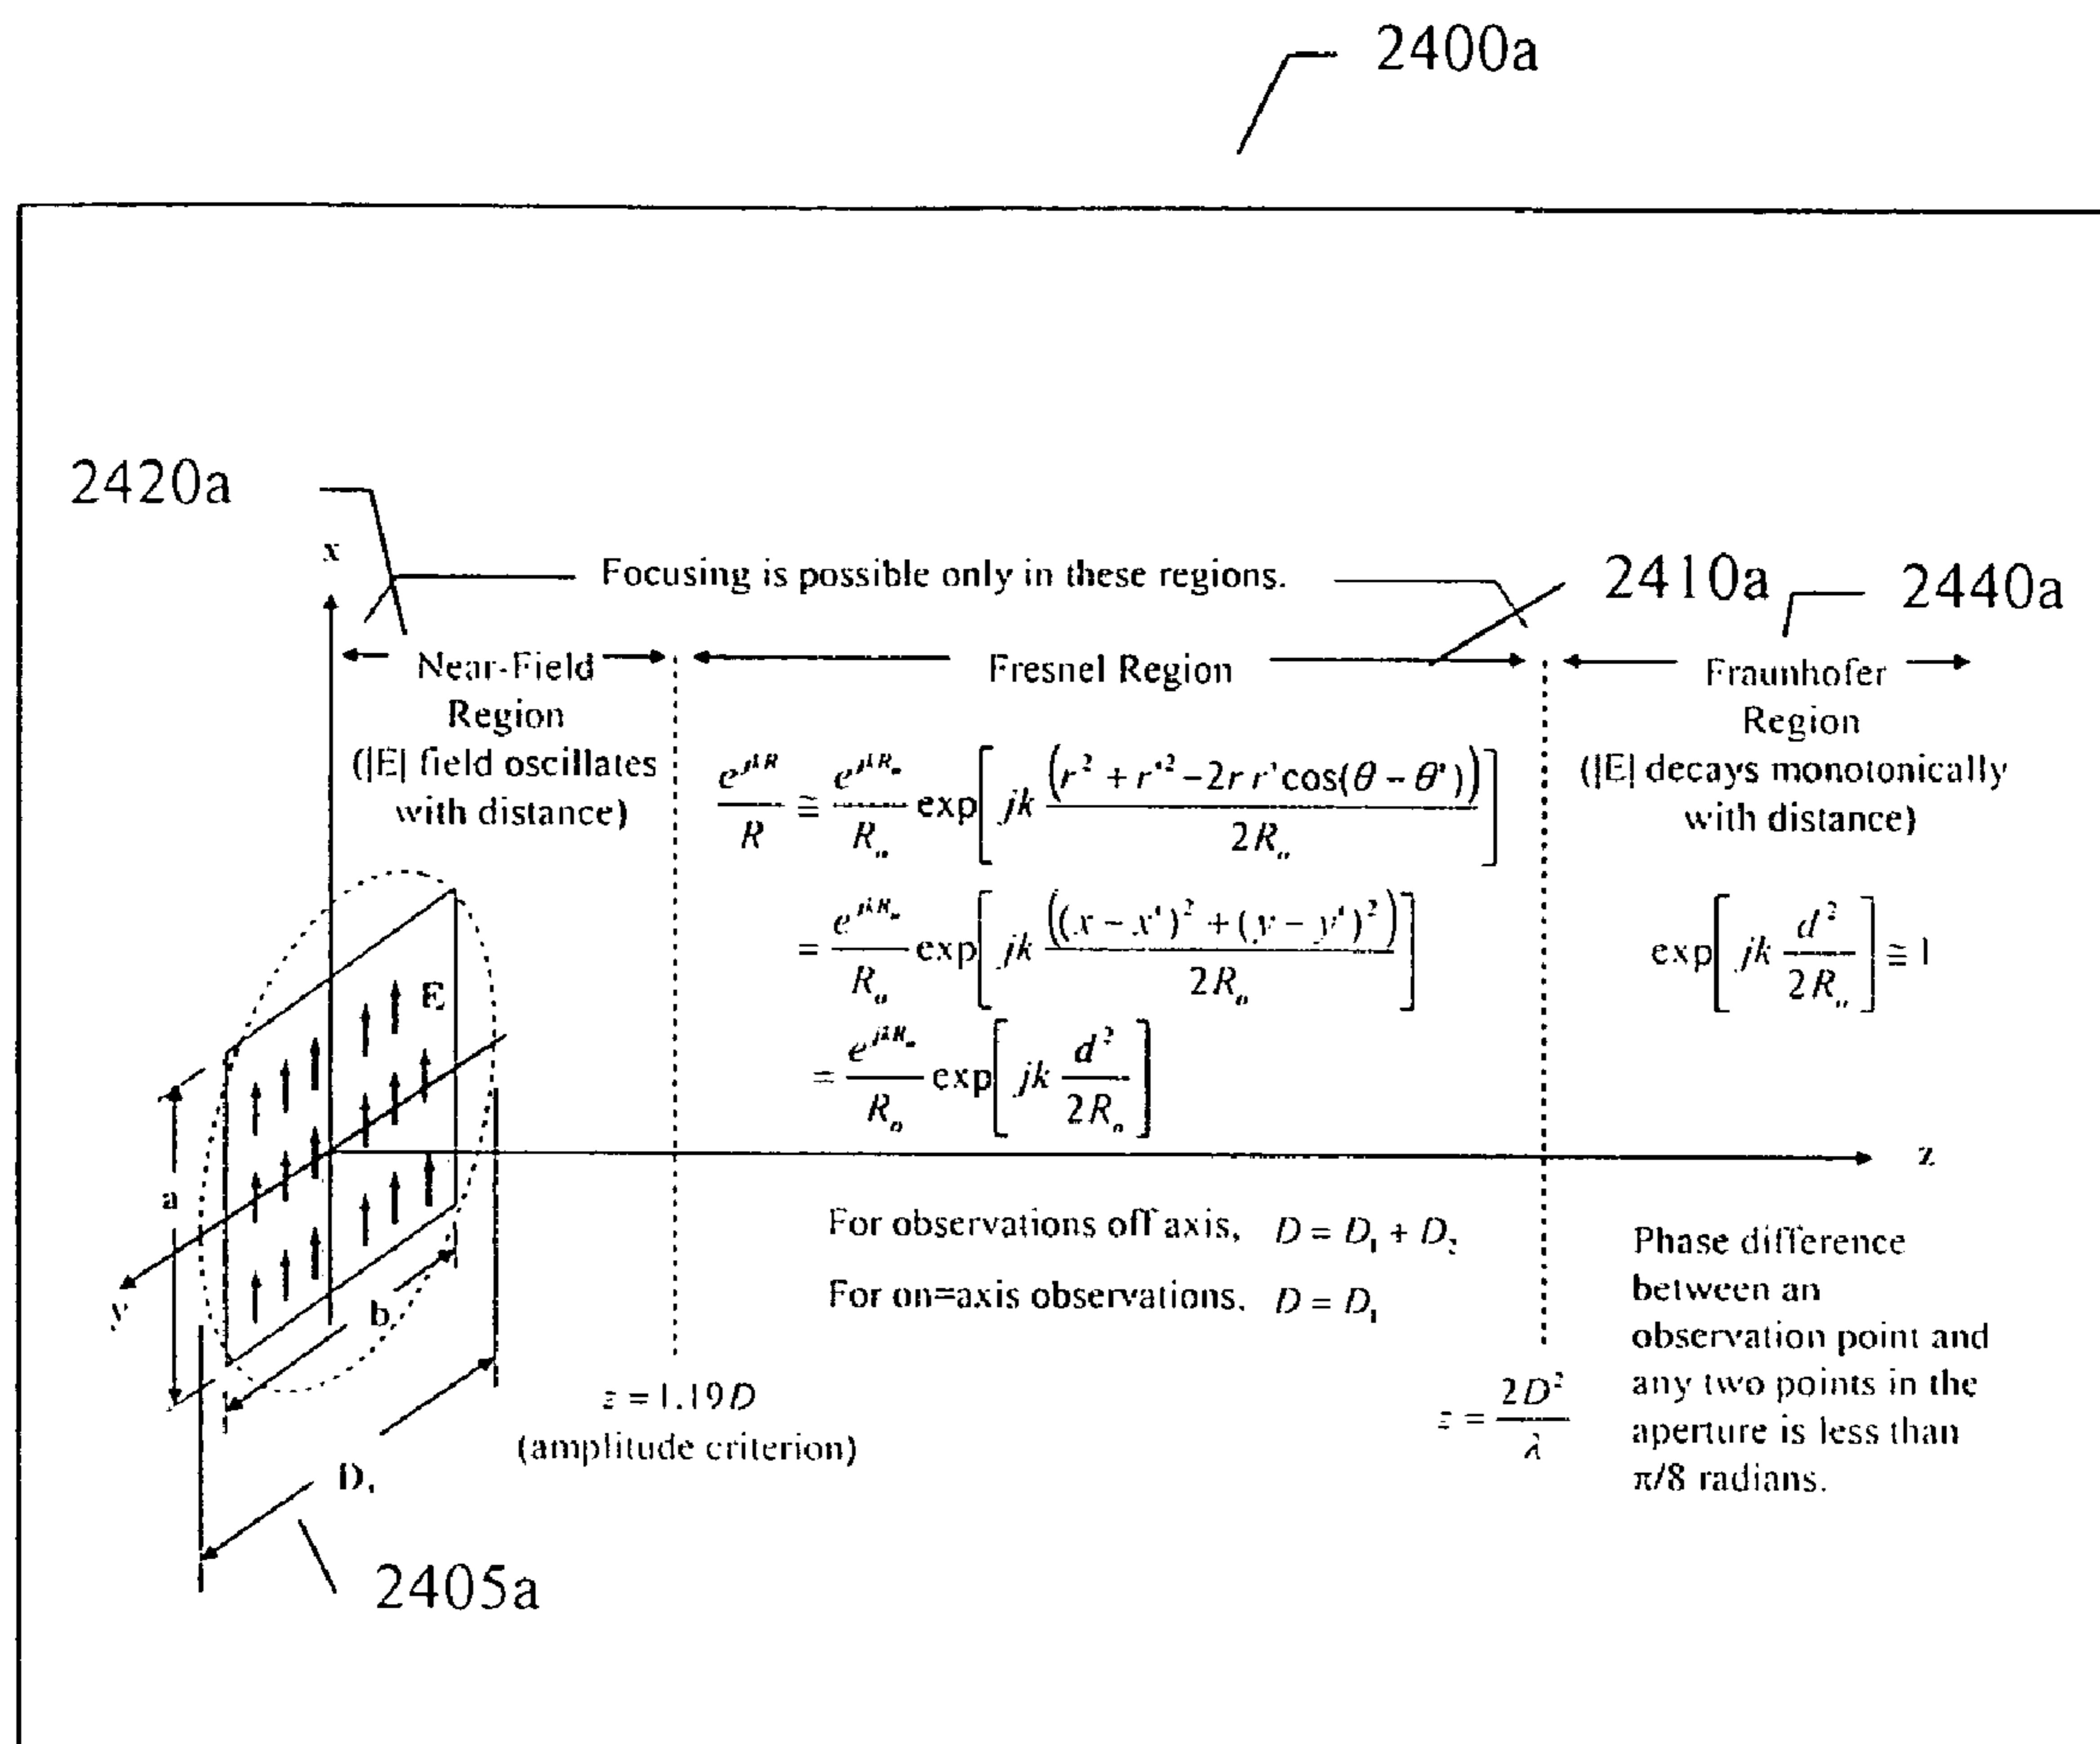 2400a
2420a
x
Focusing is possible only in these regions.
2410a
2440a
Near-Field
Region
(|E| field oscillates
with distance)
Fresnel Region
Fraunhofer
Region
(|E| decays monotonically
with distance)
e^{jkR}/R ≅ e^{jkR_o}/R_o exp[jk (r² + r'² - 2r r' cos(θ - θ'))/2R_o]
= e^{jkR_o}/R_o exp[jk ((x - x')² + (y - y')²)/2R_o]
= e^{jkR_o}/R_o exp[jk d²/2R_o]
exp[jk d²/2R_o] ≅ 1
E
a
z
y
b
D₁
For observations off axis, D = D₁ + D₂
For on=axis observations, D = D₁
z = 1.19D
(amplitude criterion)
z = 2D²/λ
Phase difference
between an
observation point and
any two points in the
aperture is less than
π/8 radians.
2405a